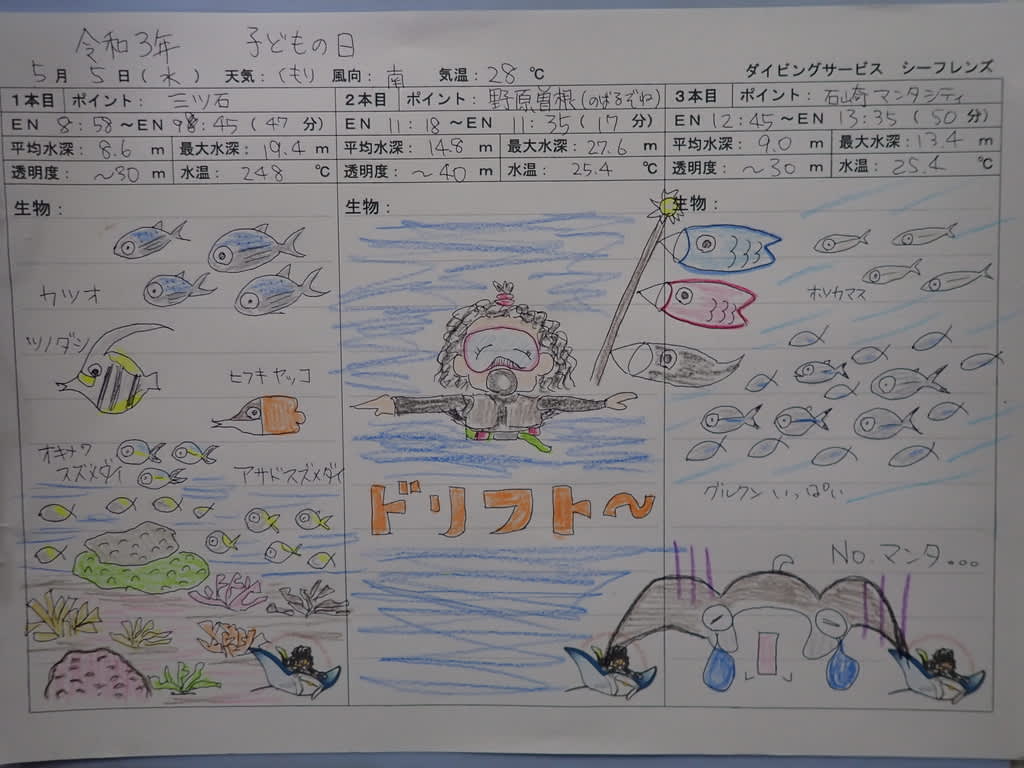 令和3年 子どもの日
5月 5日(水) 天気:くもり 風向:南 気温:28℃ ダイビングサービス シーフレンズ
1本目 ポイント: 三ツ石
EN 8:58～EN 9:45(47分)
平均水深:8.6 m 最大水深:19.4 m
透明度:～30 m 水温:24.8 ℃
生物:
カツオ
ツノダシ
ヒフキヤッコ
オキナワ
スズメダイ
アサドスズメダイ
2本目 ポイント:野原曽根(のばるぞね)
EN 11:18～EN 11:35(17分)
平均水深:14.8 m 最大水深:27.6 m
透明度:～40 m 水温: 25.4 ℃
生物:
ドリフト～
3本目 ポイント:石崎マンタシティ
EN 12:45～EN 13:35(50分)
平均水深:9.0 m 最大水深:13.4 m
透明度:～30 m 水温:25.4 ℃
生物:
ホソカマス
グルクンいっぱい
No.マンタ...